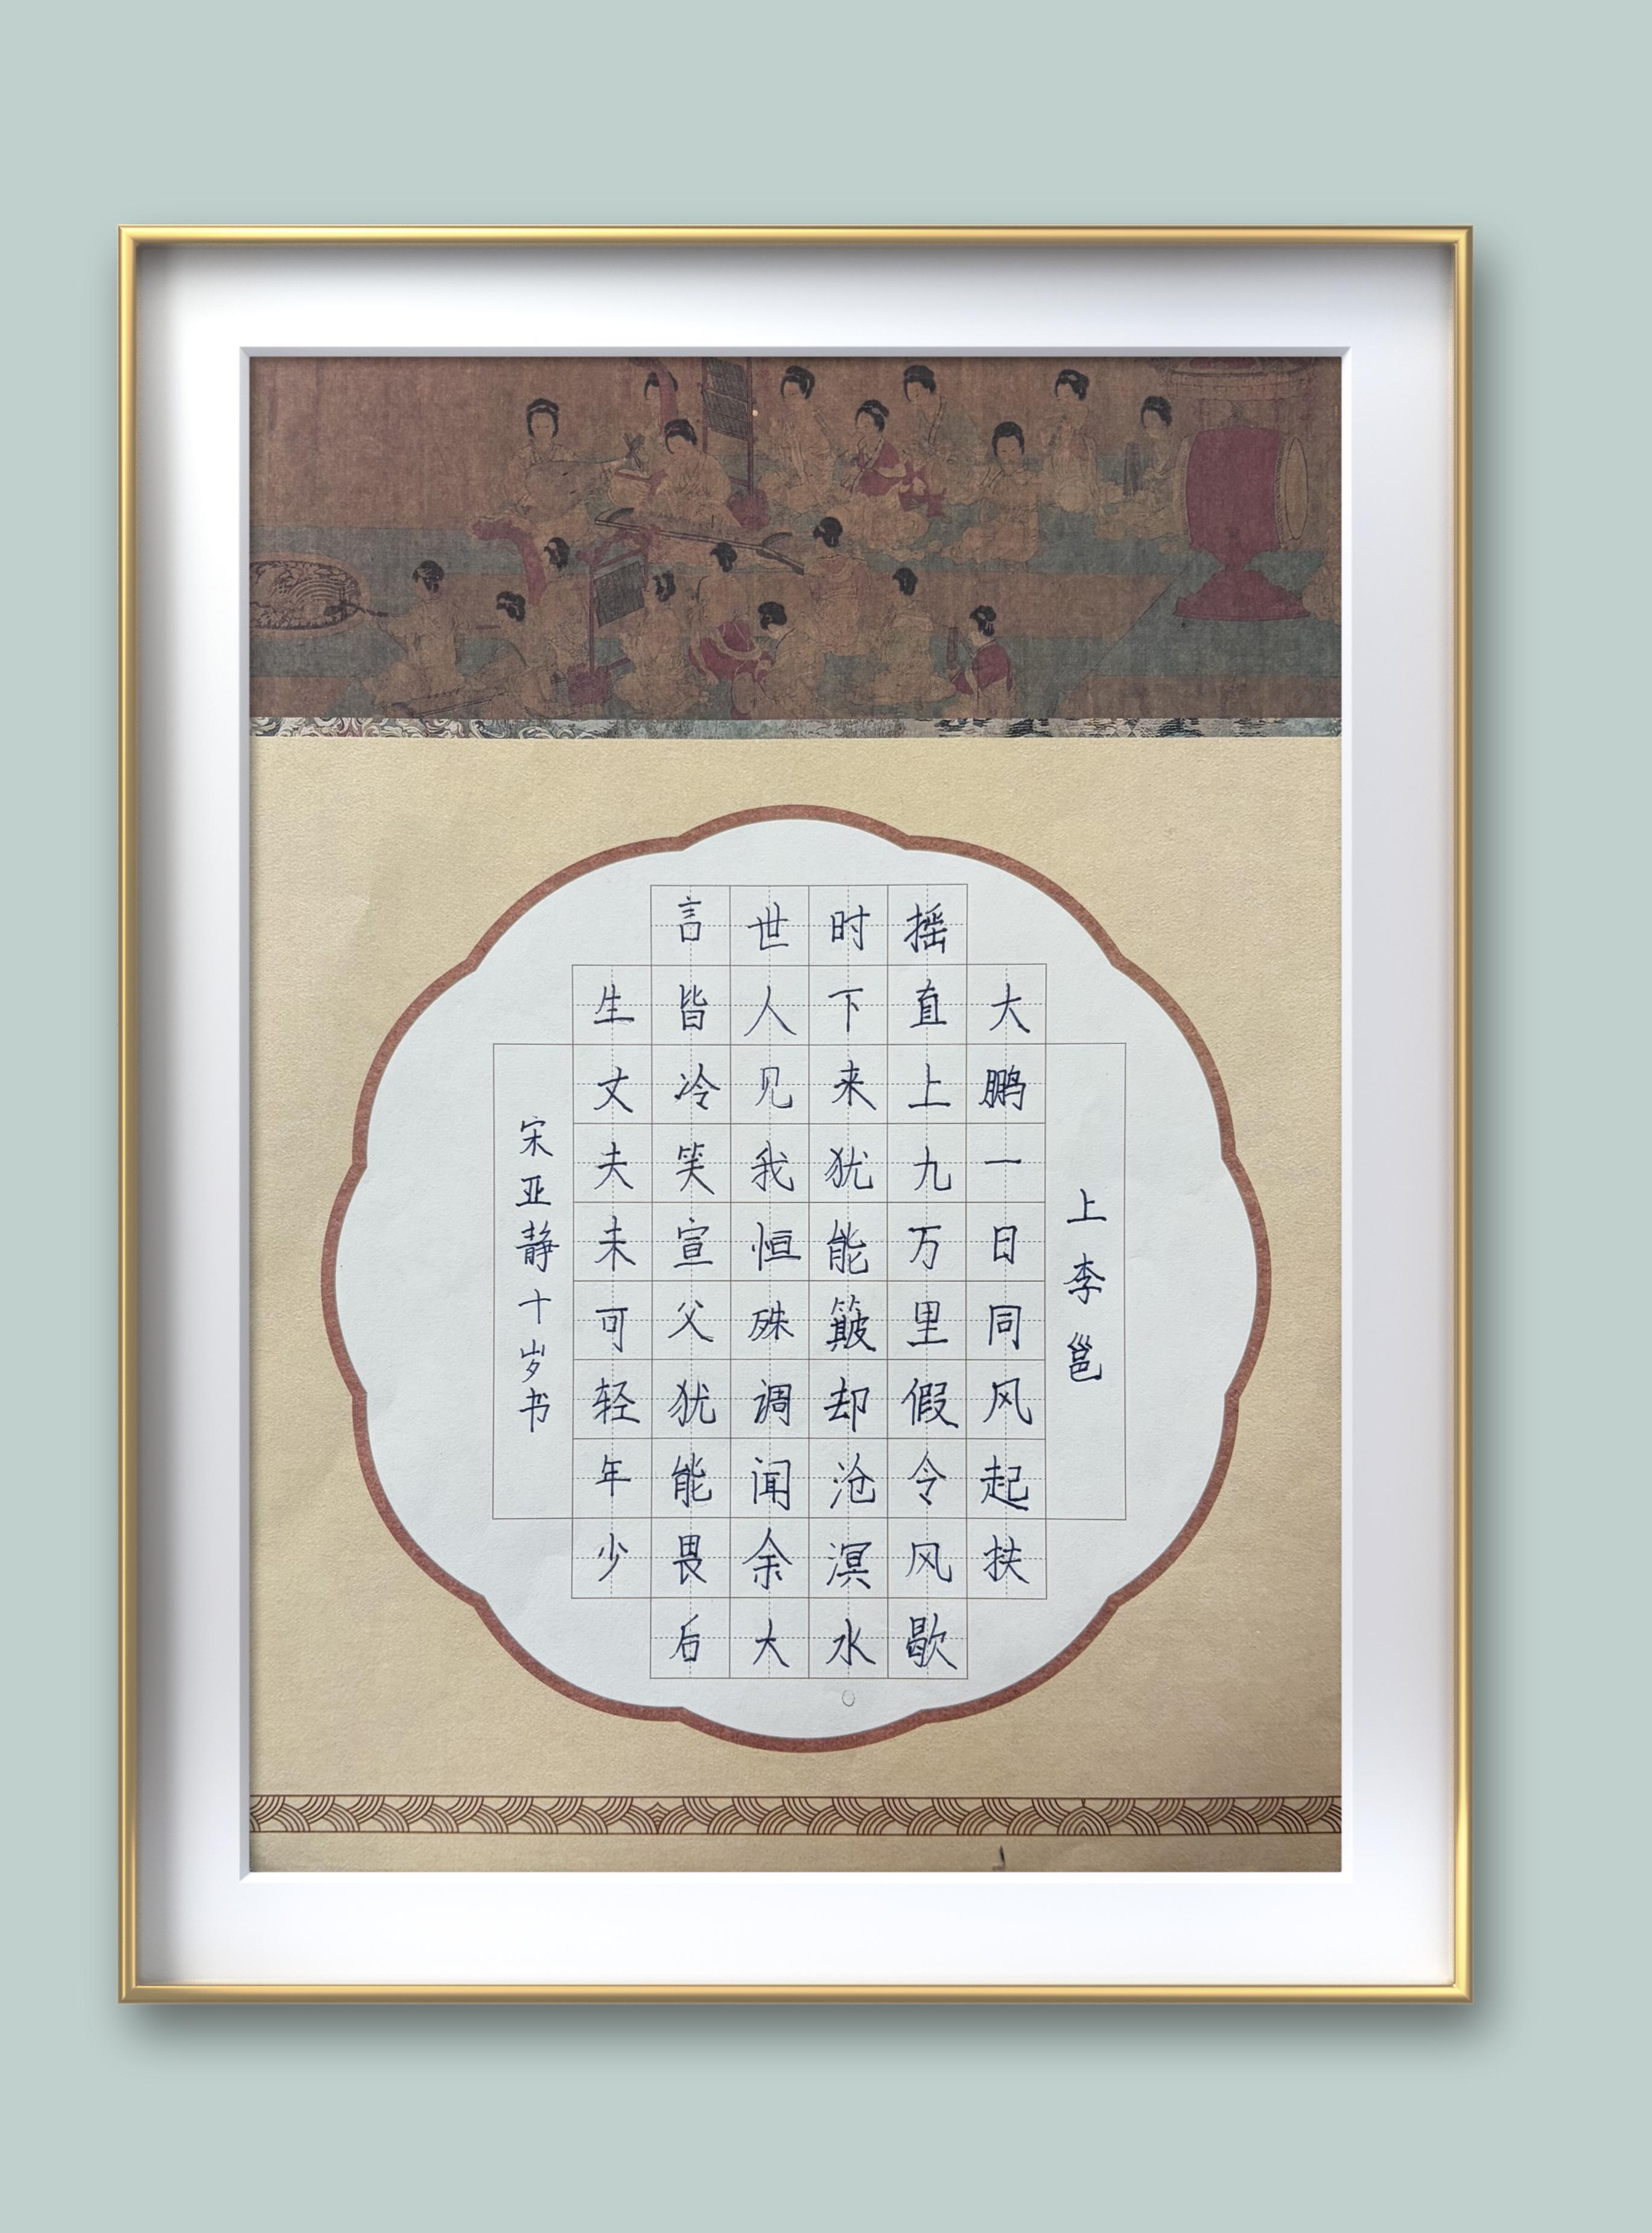 上李邕
大鹏一日同风起扶
摇直上九万里假令风歇
时下来犹能簸却沧溟水
世人见我恒殊调闻余大
言皆冷笑宣父犹能畏后
生丈夫未可轻年少
宋亚静十岁书